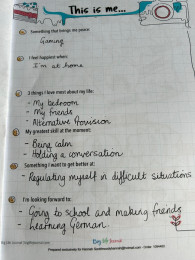 This is me...
Something that brings me peace:
Gaming
I feel happiest when:
I'm at home
3 things I love most about my life:
- My bedroom
- My friends
- Alternative Provision
My greatest skill at the moment:
- Being calm
- Holding a conversation
Something I want to get better at:
- Regulating myself in difficult situations
I'm looking forward to:
- Going to school and making friends
- Learning German
Big life journal